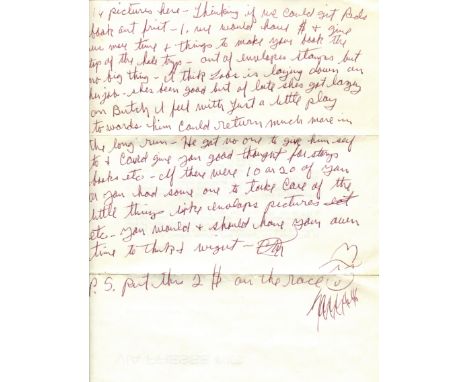 pictures here - Thinking if we could get Bobs
book out first - 1. we would have $ & give
us more time & things to make your book the
top of the tops - out of envelopes stamps but
no big thing - I think is laying down on
her job - shes been good but of late shes got lazy
on Butch I feel with just a little play
to words him could return much more in
the long run - He got no one to give him self
to & could give you good thought for songs
books etc - If there were 10 or 20 of you
or you had some one to take care of the
little things like envelopes pictures
etc - you would & should have your own
time to think &
P.S. put this 2 $ on the race